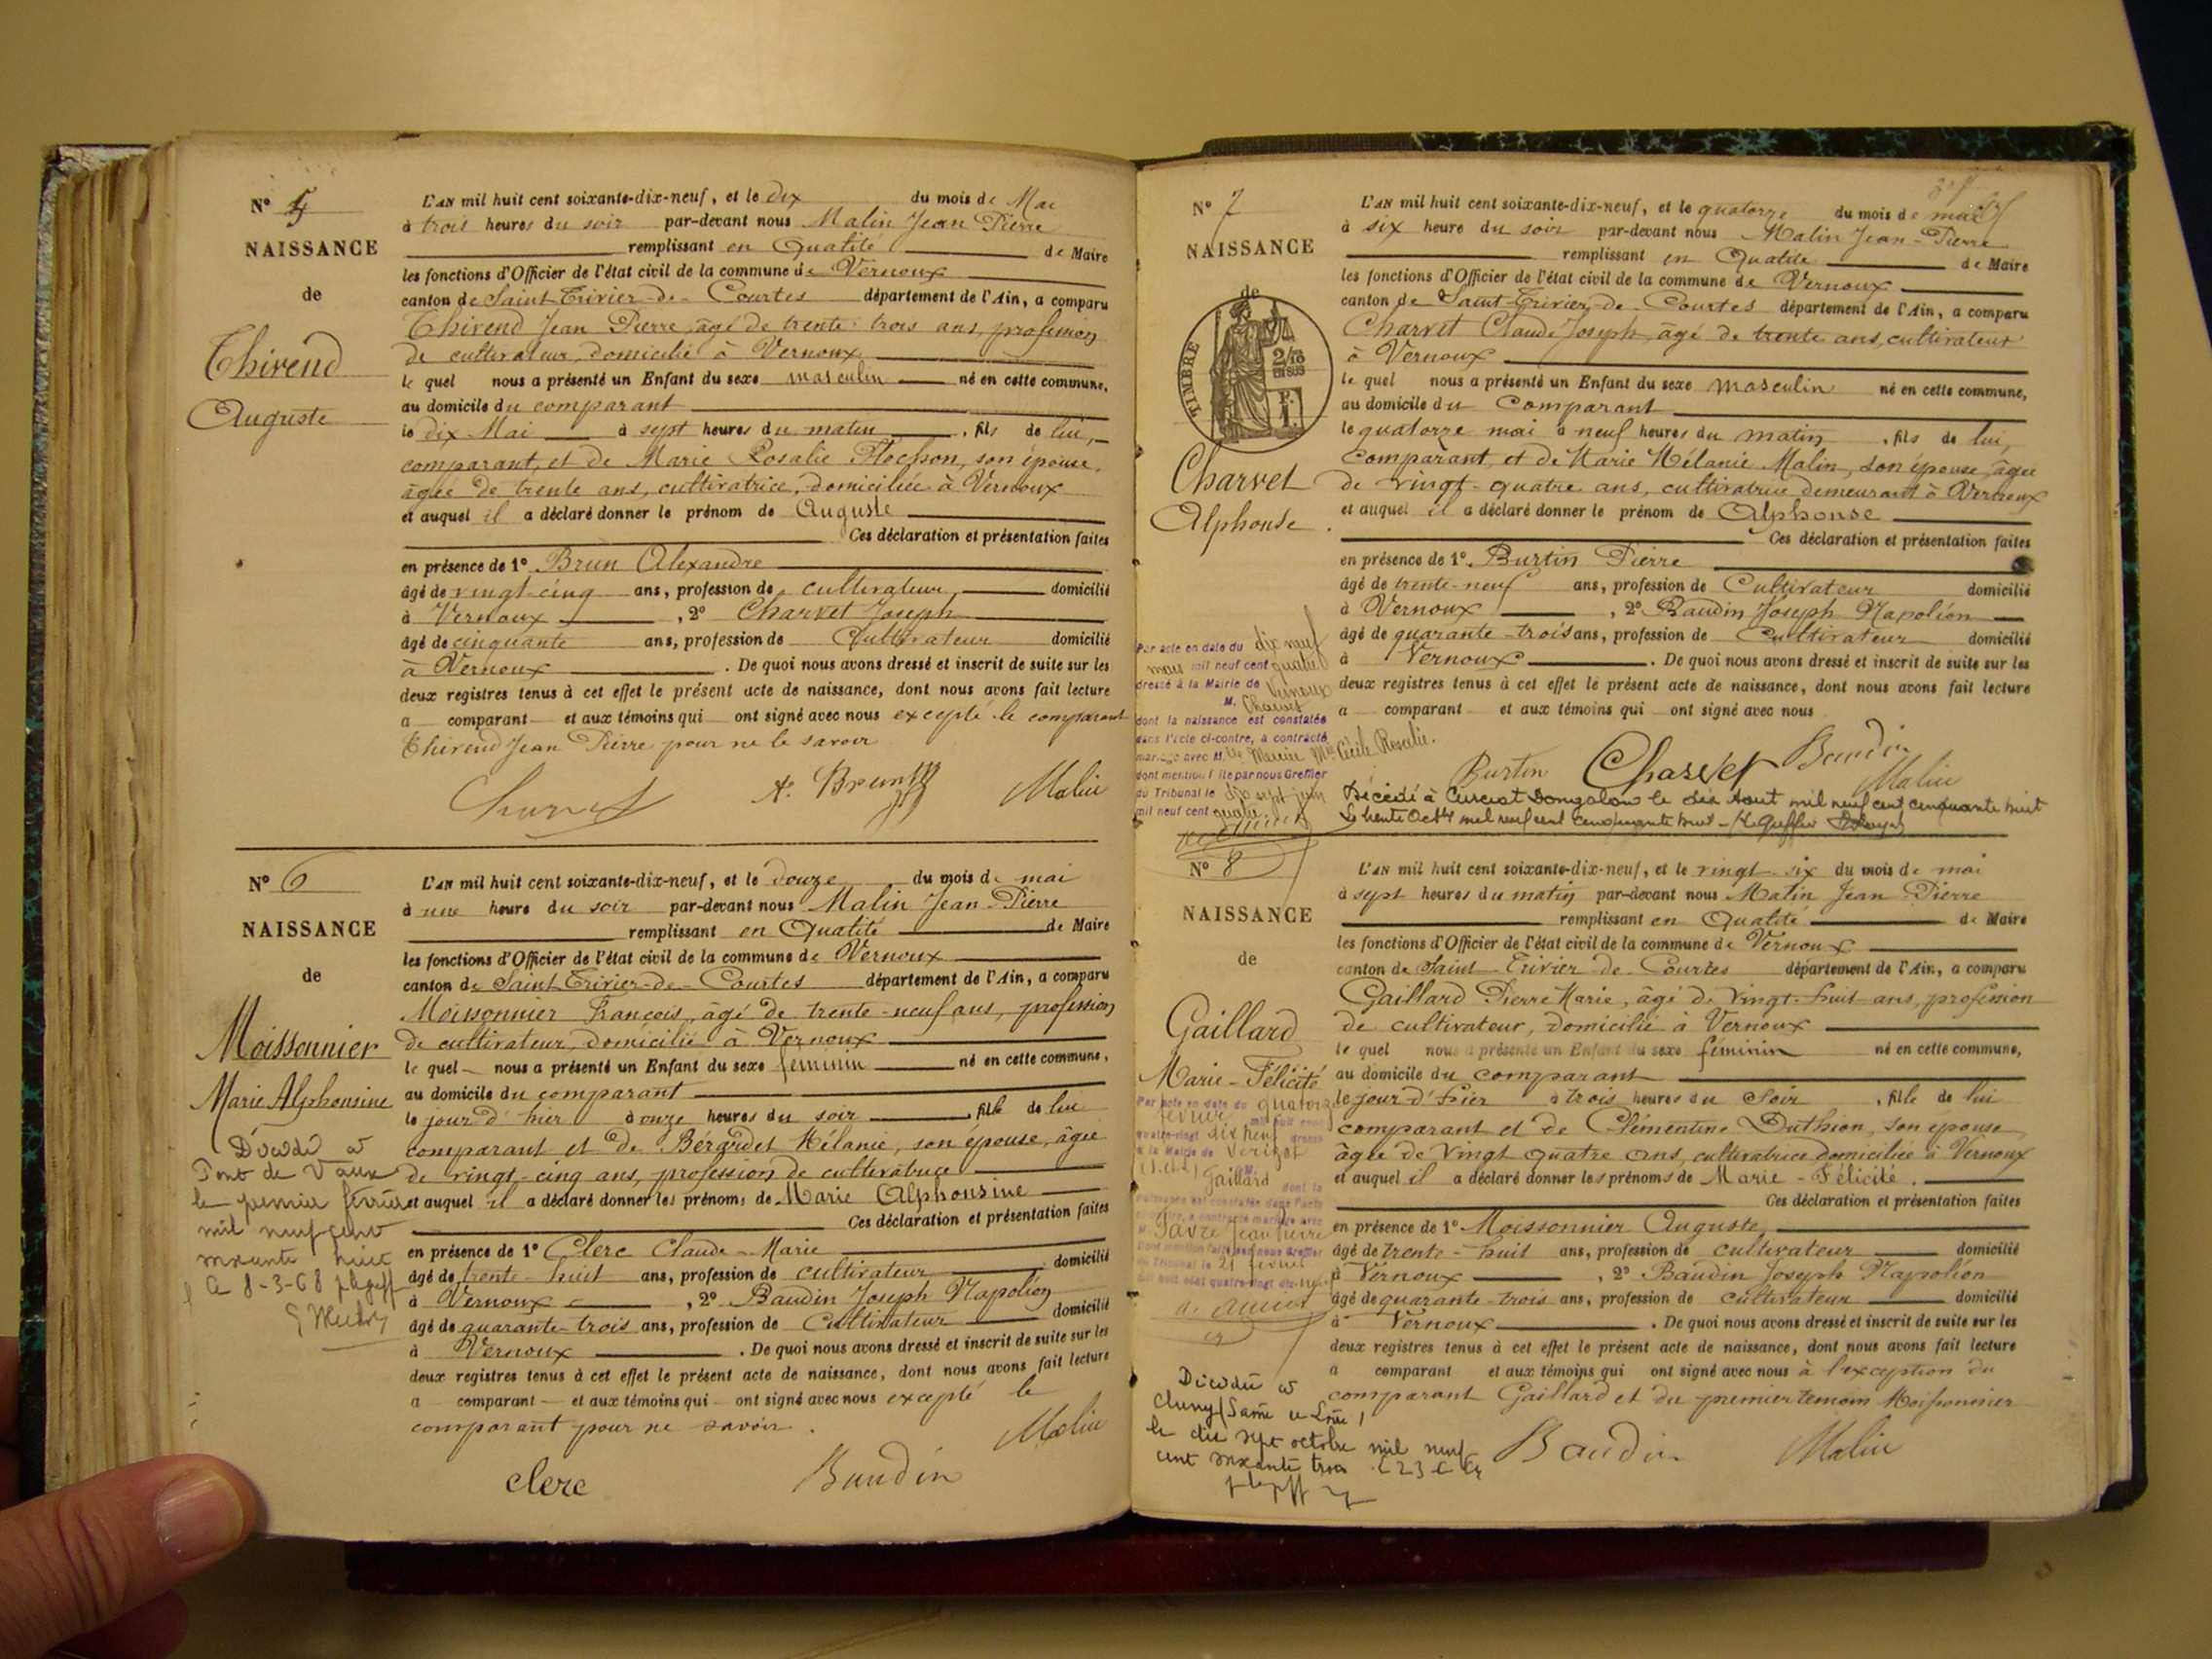 N° 5
NAISSANCE
de
Thivend
Auguste
L'AN mil huit cent soixante-dix-neuf, et le dix du mois de Mai
à trois heures du soir par-devant nous Malin Jean Pierre
remplissant en Qualité de Maire
les fonctions d'Officier de l'état civil de la commune de Vernoux
canton de Saint-Trivier-de-Courtes département de l'Ain, a comparu
Thivend Jean Pierre, âgé de trente trois ans, profession
de cultivateur, domicilié à Vernoux
le quel nous a présenté un Enfant du sexe masculin né en cette commune,
au domicile du comparant
le dix Mai à sept heures du matin, fils de lui,
comparant, et de Marie Rosalie Flochon, son épouse,
âgée de trente ans, cultivatrice, domiciliée à Vernoux
et auquel il a déclaré donner le prénom de Auguste
Ces déclaration et présentation faites
en présence de 1° Brun Alexandre
âgé de vingt-cinq ans, profession de cultivateur, domicilié
à Vernoux, 2° Charvet Joseph
âgé de cinquante ans, profession de Cultivateur domicilié
à Vernoux. De quoi nous avons dressé et inscrit de suite sur les
deux registres tenus à cet effet le présent acte de naissance, dont nous avons fait lecture
a comparant et aux témoins qui ont signé avec nous excepté le comparant
Thivend Jean Pierre pour ne le savoir
Charvet A. Brun Malin
N° 6
NAISSANCE
de
Moissonnier
Marie Alphonsine
Décédé à
Pont de Vaux
le premier février
mil neuf cent
soixante huit
le 8-3-68
L'AN mil huit cent soixante-dix-neuf, et le douze du mois de mai
à une heure du soir par-devant nous Malin Jean-Pierre
remplissant en Qualité de Maire
les fonctions d'Officier de l'état civil de la commune de Vernoux
canton de Saint-Trivier-de-Courtes département de l'Ain, a comparu
Moissonnier François, âgé de trente-neuf ans, profession
de cultivateur, domicilié à Vernoux
le quel nous a présenté un Enfant du sexe féminin né en cette commune,
au domicile du comparant
le jour d'hier à onze heures du soir, fille de lui
comparant et de Bérardet Mélanie, son épouse, âgée
de vingt-cinq ans, profession de cultivatrice
et auquel il a déclaré donner les prénoms de Marie Alphonsine
Ces déclaration et présentation faites
en présence de 1° Clerc Claude-Marie
âgé de trente-huit ans, profession de cultivateur domicilié
à Vernoux, 2° Baudin Joseph Napoléon
âgé de quarante-trois ans, profession de Cultivateur domicilié
à Vernoux. De quoi nous avons dressé et inscrit de suite sur les
deux registres tenus à cet effet le présent acte de naissance, dont nous avons fait lecture
a comparant et aux témoins qui ont signé avec nous excepté le
comparant pour ne savoir.
Malin
clerc Baudin
N° 7
NAISSANCE
de
TIMBRE
2/10
EN SUS
Charvet
Alphonse
Par acte en date du dix neuf
mars mil neuf cent quatre
dressé à la Mairie de Vernoux
M. Charvet
dont la naissance est constatée
dans l'acte ci-contre, a contracté
mariage avec Cécile Rosalie.
dont mention faite par nous Greffier
du Tribunal le dix sept juin
mil neuf cent quatre.
L'AN mil huit cent soixante-dix-neuf, et le quatorze du mois de mai
à six heure du soir par-devant nous Malin Jean-Pierre
remplissant en Qualité de Maire
les fonctions d'Officier de l'état civil de la commune de Vernoux
canton de Saint-Trivier-de-Courtes département de l'Ain, a comparu
Charvet Claude Joseph, âgé de trente ans, cultivateur
à Vernoux
le quel nous a présenté un Enfant du sexe masculin né en cette commune,
au domicile du Comparant
le quatorze mai à neuf heures du matin, fils de lui,
comparant, et de Marie Mélanie Malin, son épouse, âgée
de vingt-quatre ans, cultivatrice demeurant à Vernoux
et auquel il a déclaré donner le prénom de Alphonse
Ces déclaration et présentation faites
en présence de 1° Burtin Pierre
âgé de trente-neuf ans, profession de Cultivateur domicilié
à Vernoux, 2° Baudin Joseph Napoléon
âgé de quarante-trois ans, profession de Cultivateur domicilié
à Vernoux. De quoi nous avons dressé et inscrit de suite sur les
deux registres tenus à cet effet le présent acte de naissance, dont nous avons fait lecture
a comparant et aux témoins qui ont signé avec nous
Burtin Charvet Baudin
Malin
Décédé à Curciat Dongalon le dix Aout mil neuf cent cinquante huit
Le trente Octe mil neuf cent cinquante huit - Le Greffier
N° 8
NAISSANCE
de
Gaillard
Marie-Félicité
Par acte en date du quatorze
février mil huit cent
quatre-vingt dix neuf dressé
à la Mairie de
Gaillard dont la
naissance est constatée dans l'acte
a contracté mariage avec
Favre Jean Pierre
Dont mention faite par nous Greffier
du Tribunal le 21 février
mil huit cent quatre-vingt dix-neuf
Décédée à
Cluny (Saône et Loire)
le dix sept octobre mil neuf
cent soixante trois
L'AN mil huit cent soixante-dix-neuf, et le vingt-six du mois de mai
à sept heures du matin par-devant nous Malin Jean Pierre
remplissant en Qualité de Maire
les fonctions d'Officier de l'état civil de la commune de Vernoux
canton de Saint-Trivier-de-Courtes département de l'Ain, a comparu
Gaillard Pierre Marie, âgé de vingt-huit ans, profession
de cultivateur, domicilié à Vernoux
le quel nous a présenté un Enfant du sexe féminin né en cette commune,
au domicile du comparant
le jour d'hier à trois heures du Soir, fille de lui
comparant et de Clémentine Duthion, son épouse
âgée de vingt quatre ans, cultivatrice domiciliée à Vernoux
et auquel il a déclaré donner les prénoms de Marie-Félicité.
Ces déclaration et présentation faites
en présence de 1° Moissonnier Auguste
âgé de trente-huit ans, profession de cultivateur domicilié
à Vernoux, 2° Baudin Joseph Napoléon
âgé de quarante-trois ans, profession de cultivateur domicilié
à Vernoux. De quoi nous avons dressé et inscrit de suite sur les
deux registres tenus à cet effet le présent acte de naissance, dont nous avons fait lecture
a comparant et aux témoins qui ont signé avec nous à l'exception du
comparant Gaillard et du premier temoin Moissonnier
Baudin Malin